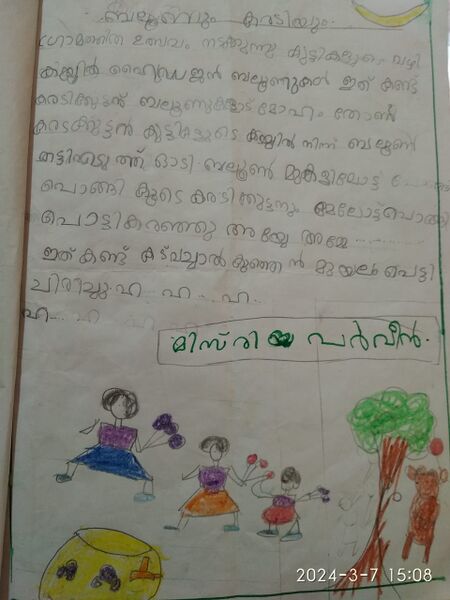 ബലൂണും കരടിയും
ഗ്രാമത്തിൽ ഉത്സവം നടക്കുന്നു കുട്ടികളുടെ
കയ്യിൽ ഹൈഡ്രജൻ ബലൂണുകൾ ഇത് കണ്ട്
കരടിക്കുട്ടന് ബലൂണുകളോട് മോഹം തോന്നി
കരടിക്കുട്ടൻ കുട്ടികളുടെ കയ്യിൽ നിന്ന് ബലൂൺ
തട്ടിയെടുത്ത് ഓടി. ബലൂൺ മുകളിലോട്ട്
പൊങ്ങി കൂടെ കരടിക്കുട്ടനും മേലോട്ട് പൊങ്ങി
പൊട്ടികരഞ്ഞു അയ്യേ അമ്മേ ...........
ഇത് കണ്ട് കുഞ്ഞൻ മുയല് പൊട്ടി
ചിരിച്ചു. ഹ ... ഹ ... ഹ..
ഹ.... ഹ ഹ
മിസ്രിയ പർവീൻ.
2024-3-7 15:08